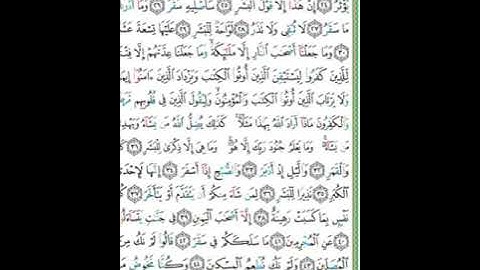 يُؤْثَرُ ﴿٢٤﴾ إِنْ هَٰذَا إِلَّا قَوْلُ الْبَشَرِ ﴿٢٥﴾ سَأُصْلِيهِ سَقَرَ ﴿٢٦﴾ وَمَا أَدْرَ
مَا سَقَرُ ﴿٢٧﴾ لَا تُبْقِي وَلَا تَذَرُ ﴿٢٨﴾ لَوَّاحَةٌ لِلْبَشَرِ ﴿٢٩﴾ عَلَيْهَا تِسْعَةَ عَشَ
﴿٣٠﴾ وَمَا جَعَلْنَا أَصْحَابَ النَّارِ إِلَّا مَلَائِكَةً وَمَا جَعَلْنَا عِدَّتَهُمْ إِلَّا فِتْنَ
لِلَّذِينَ كَفَرُوا لِيَسْتَيْقِنَ الَّذِينَ أُوتُوا الْكِتَابَ وَيَزْدَادَ الَّذِينَ آمَنُوا إِيمَا
وَلَا يَرْتَابَ الَّذِينَ أُوتُوا الْكِتَابَ وَالْمُؤْمِنُونَ وَلِيَقُولَ الَّذِينَ فِي قُلُوبِهِمْ مَرَضٌ
وَالْكَافِرُونَ مَاذَا أَرَادَ اللَّهُ بِهَٰذَا مَثَلًا كَذَٰلِكَ يُضِلُّ اللَّهُ مَنْ يَشَاءُ وَيَهْدِي
مَنْ يَشَاءُ وَمَا يَعْلَمُ جُنُودَ رَبِّكَ إِلَّا هُوَ وَمَا هِيَ إِلَّا ذِكْرَىٰ لِلْبَشَرِ ﴿٣١﴾
وَالْقَمَرِ ﴿٣٢﴾ وَاللَّيْلِ إِذْ أَدْبَرَ ﴿٣٣﴾ وَالصُّبْحِ إِذَا أَسْفَرَ ﴿٣٤﴾ إِنَّهَا لَإِحْدَى
الْكُبَرِ ﴿٣٥﴾ نَذِيرًا لِلْبَشَرِ ﴿٣٦﴾ لِمَنْ شَاءَ مِنْكُمْ أَنْ يَتَقَدَّمَ أَوْ يَتَأَخَّرَ ﴿٣٧﴾
نَفْسٍ بِمَا كَسَبَتْ رَهِينَةٌ ﴿٣٨﴾ إِلَّا أَصْحَابَ الْيَمِينِ ﴿٣٩﴾ فِي جَنَّاتٍ يَتَسَاءَلُونَ
﴿٤٠﴾ عَنِ الْمُجْرِمِينَ ﴿٤١﴾ مَا سَلَكَكُمْ فِي سَقَرَ ﴿٤٢﴾ قَالُوا لَمْ نَكُ مِنَ
الْمُصَلِّينَ ﴿٤٣﴾ وَلَمْ نَكُ نُطْعِمُ الْمِسْكِينَ ﴿٤٤﴾ وَكُنَّا نَخُوضُ مَعَ